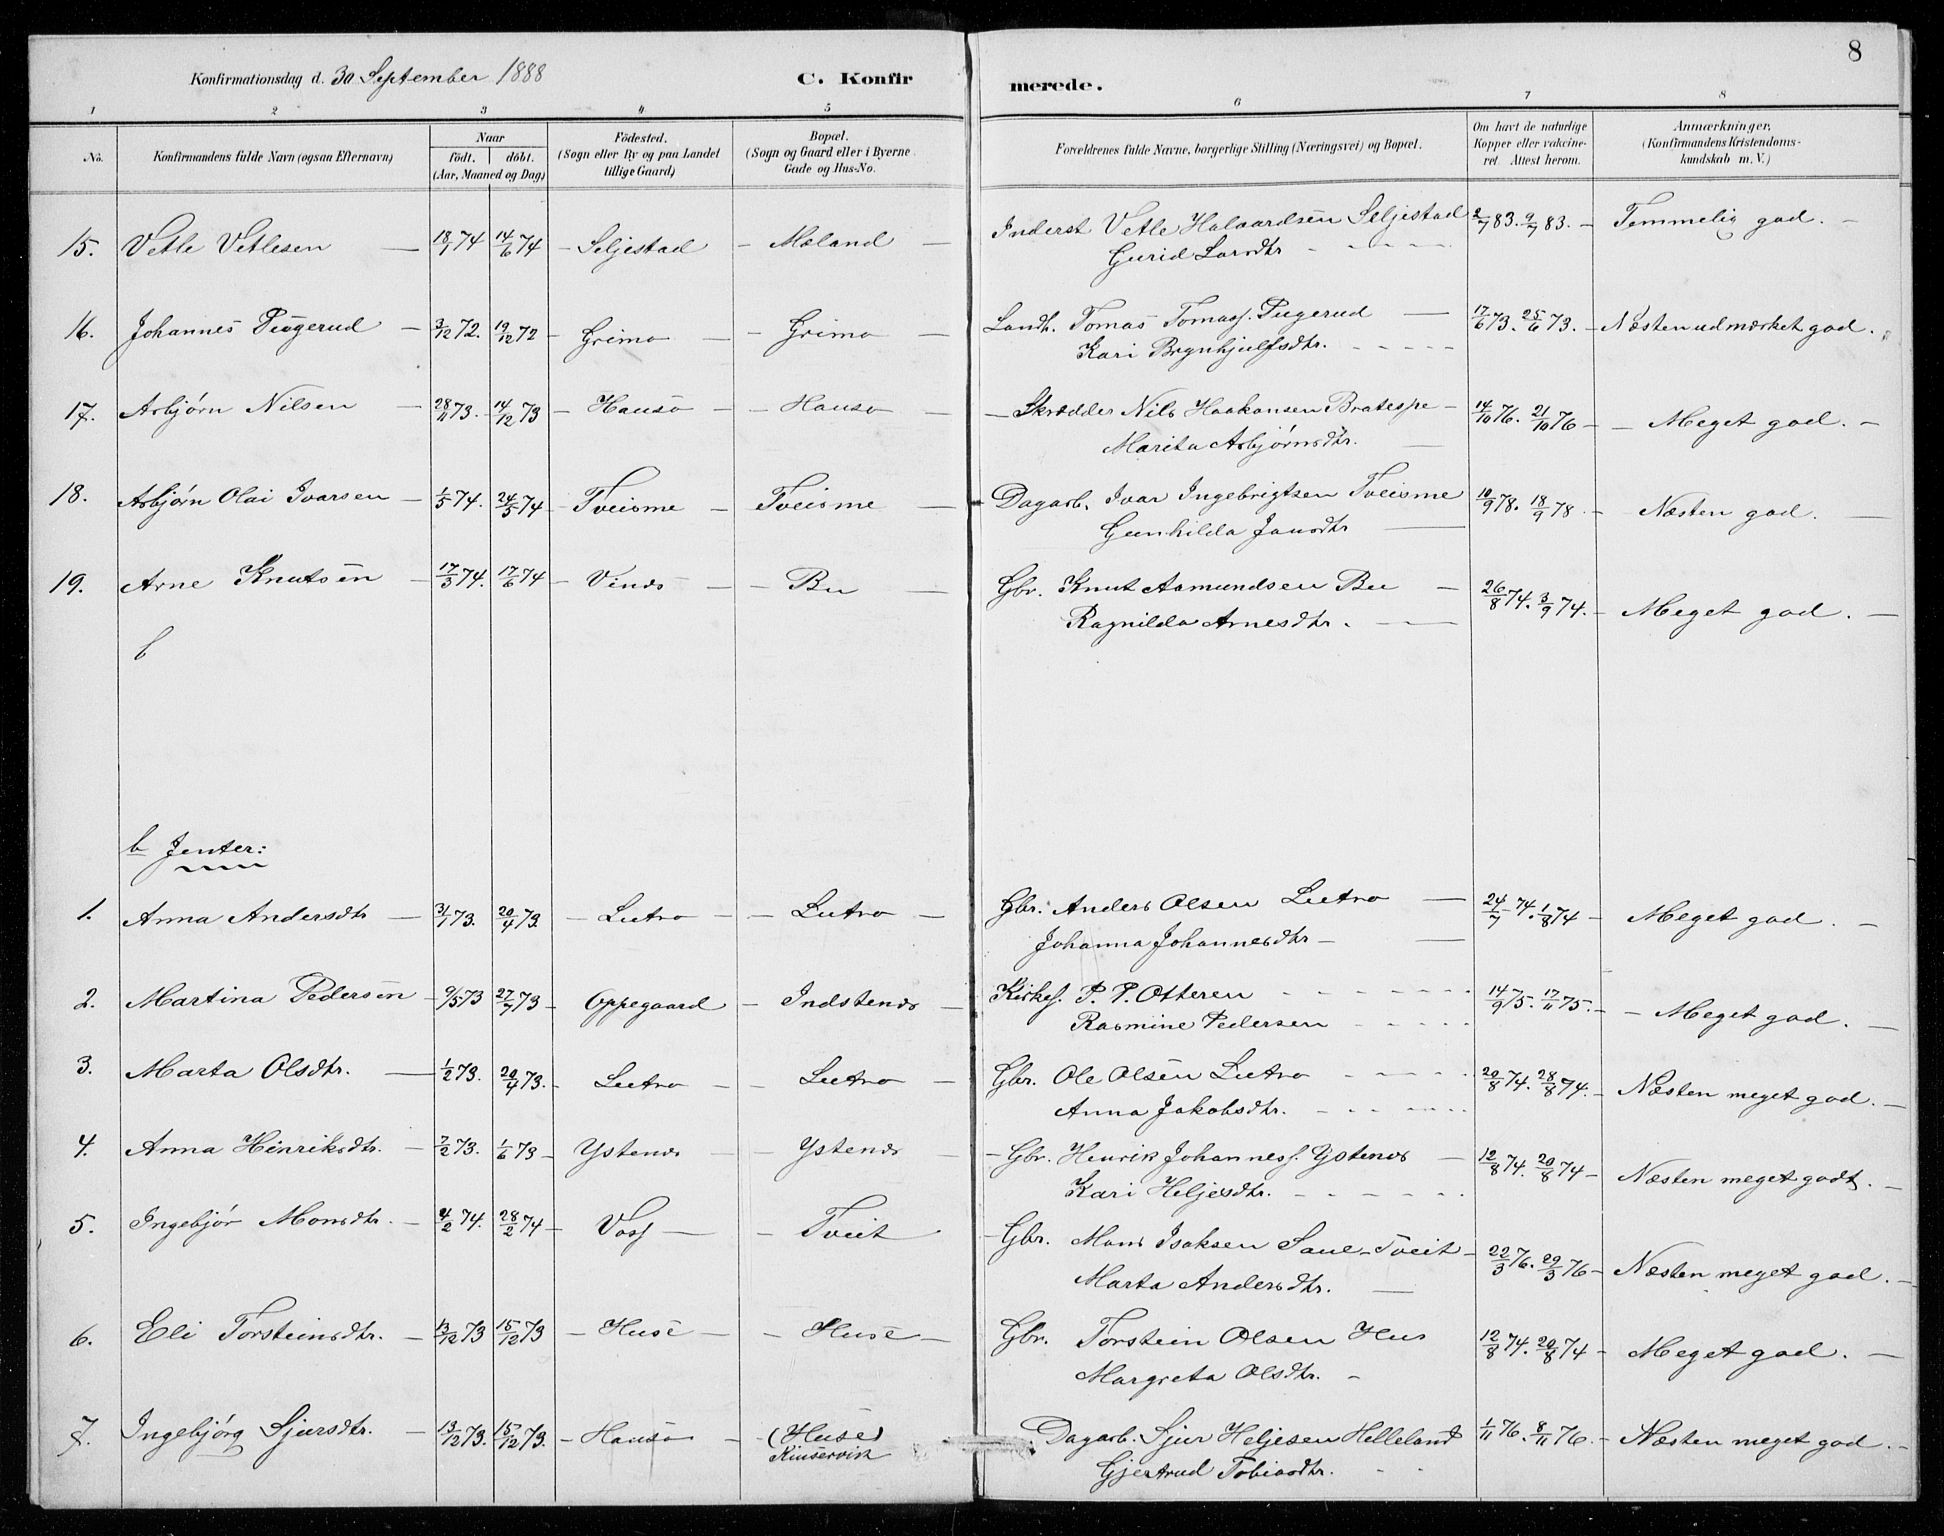 8
Konfirmationsdag d. 30 September 1888 C. Konfirmerede.
1 2 3 4 5 6 7 8
No. Konfirmandens fulde Navn (ogsaa Efternavn) Naar födt. döbt. (Aar, Maaned og Dag) Födested. (Sogn eller By og paa Landet tillige Gaard) Bopæl. (Sogn og Gaard eller i Byerne Gade og Hus-No. Forældrenes fulde Navne, borgerlige Stilling (Næringsvei) og Bopæl. Om havt de naturlige Kopper eller vakcineret. Attest herom. Anmærkninger. (Konfirmandens Kristendomskundskab m. V.)
15. Vetle Vetlesen — 18/1 74 14/6 74 – Seljestad – Mæland — Inderst Vetle Halvardsen Seljestad 2/7 83. 9/7 83. – Temmelig god. –
Gurid Larsdtr - - - - -
16. Johannes Pugerud — 3/12 72. 19/12 72 – Grimo – Grimo — Landh. Tomas Tomass. Pugerud — 17/6 73. 25/6 73. – Næsten udmærket god.
Kari Brynhjulfsdtr. - - - - -
17. Asbjørn Nilsen — 28/11 73. 14/12 73 – Hauso – Hauso — Skrædder Nils Haakonsen Bratespe – 14/10 76. 21/10 76 – Meget god. –
Marita Asbjørnsdtr. —
18. Asbjørn Olai Ivarsen – 1/5 74. 24/5 74 – Tveisme – Tveisme — Dagarb. Ivar Ingebrigtsen Tveisme 10/9 78. 18/9 78. – Næsten god. —
Gunhilda Jansdtr —
19. Arne Knutsen – 17/3 74. 17/6 74 – Vinæs – Bu — Gbr. Knut Asmundsen Bu – 26/8 74. 3/9 74. – Meget god. —
Ragnilda Arnesdtr. —
b
b Jenter:
1. Anna Andersdtr — 31/1 73. 20/4 73. – Lutro – Lutro – Gbr. Anders Olsen Lutro — 24/7 74. 1/8 74 – Meget god. —
Johanna Johannesdtr – —
2. Martina Pedersen – 9/5 73 27/7 73 – Oppegaard – Indstenæs – Kirkes. P. P. Otteren - - - - 14/9 75. 17/11 75. – Meget god. —
Rasmine Pedersen - - - -
3. Marta Olsdtr. — 1/2 73. 20/4 73. – Lutro – Lutro – Gbr. Ole Olsen Lutro - - - - 20/8 74. 28/8 74. – Næsten meget god. –
Anna Jakobsdtr. - - - -
4. Anna Hinriksdtr. – 7/2 73. 1/6 73 – Ystenæs – Ystenæs – Gbr. Henrik Johanness. Ystenæs – 12/8 74. 20/8 74 – Næsten meget godt. –
Kari Heljesdtr. - - - -
5. Ingebjør Monsdtr. – 4/2 74. 28/2 74 – Voss — Tveit — Gbr. Mons Isaksen Saue-Tveit – 22/3 76. 29/3 76 – Næsten meget god. –
Marta Andersdtr. —
6. Eli Torsteinsdtr. – 13/12 73 15/12 73 – Huse – Huse – Gbr. Torstein Olsen Hus 12/8 74. 20/8 74 – Meget god. —
Margreta Olsdtr. –
7. Ingebjørg Sjursdtr. – 13/12 73. 15/12 73. – Hauso – (Huse) Dagarb. Sjur Heljesen Helleland 1/11 76. 8/11 76. – Næsten meget god. –
Kinservik Gjertrud Tobiasdtr. - -